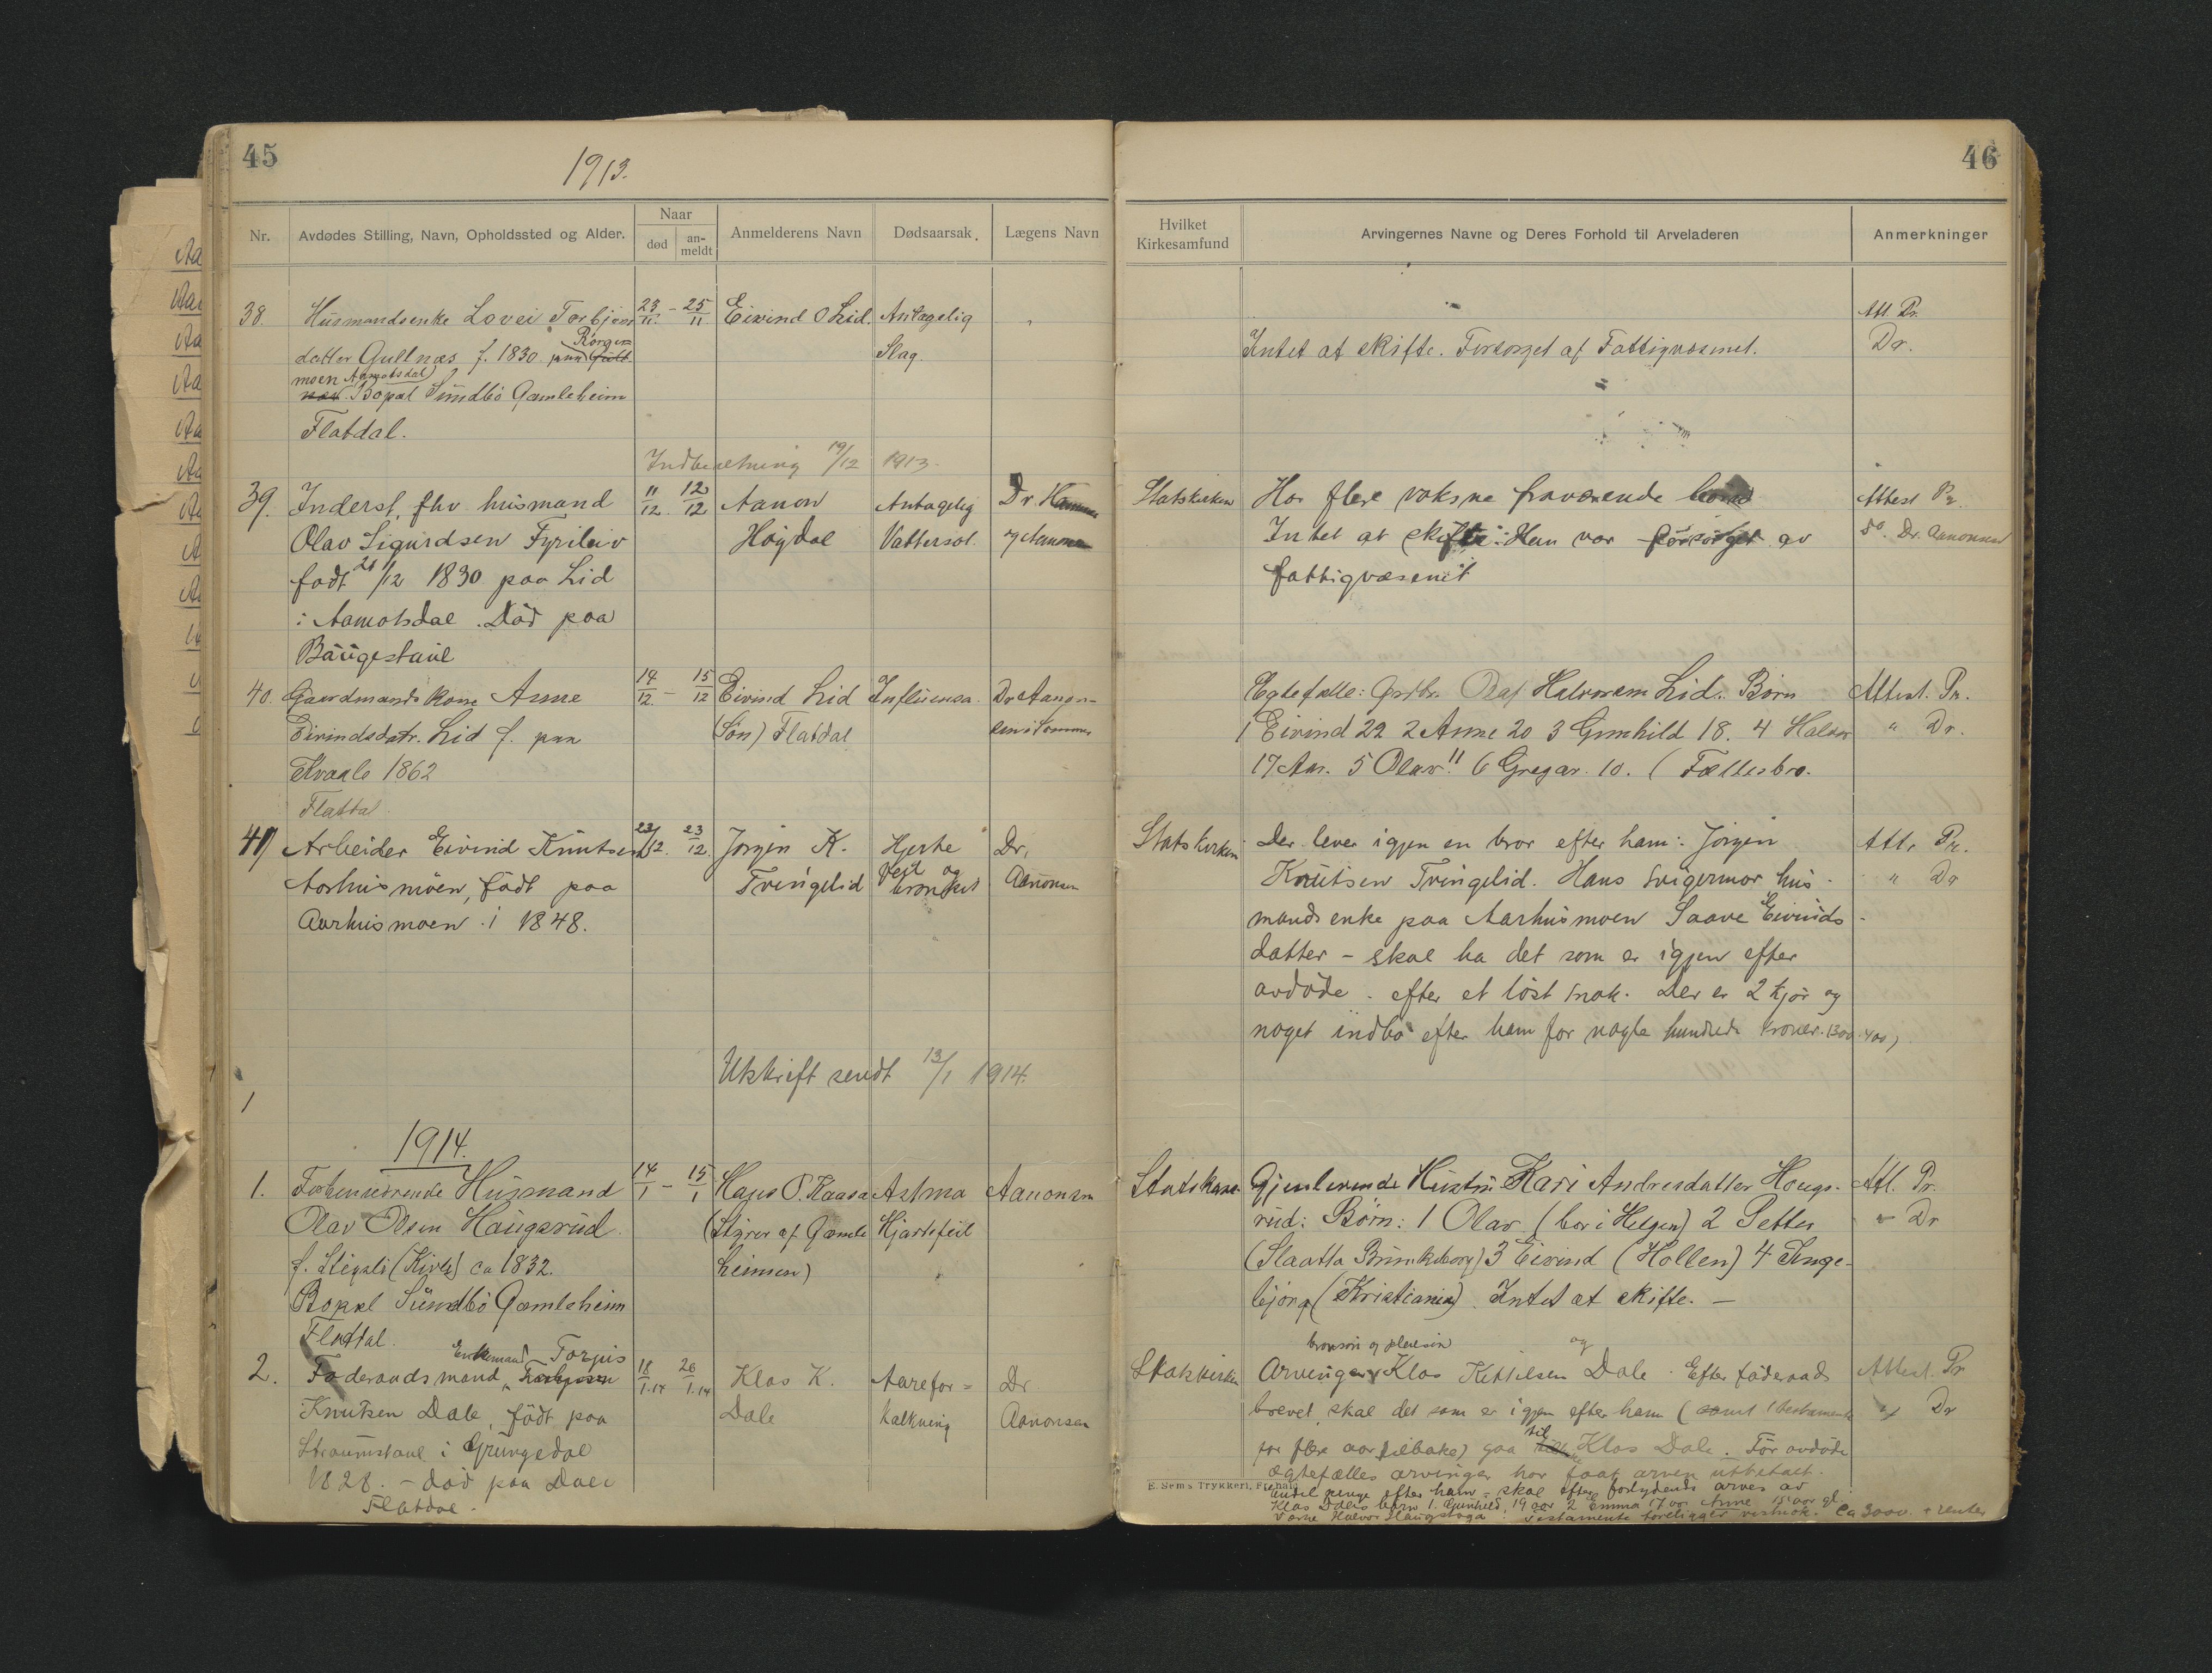 45
1913.
Nr.
Avdødes Stilling, Navn, Opholdssted og Alder.
Naar
død
an-
meldt
Anmelderens Navn
Dødsaarsak.
Lægens Navn
38.
Husmandsenke Lovei Torbjøns
23/11. - 25/11.
Eivind O Lid.
Antagelig
Rorgen
datter Gullnæs f. 1830 paa
Slag
moen Aamotsdal)
Bopæl Sundbö Gamleheim
Flatdal.
Indberetning 19/12 1913.
39.
Inderst, fhv. husmand
11/12. 12/12
Aanon
Antagelig
Dr
Olav Sigurdsen Fyrileiv
Høydal
Vattersot.
født 21/12 1830 paa Lid
i Aamotsdal. Død paa
40.
Gaardmandskone Anne
14/12. - 15/12
Eivind Lid
Influensa.
Dr Aanon-
Eivindsdatr. Lid f. paa
(Søn) Flatdal
Kvaale 1862
Flatdal
41
Arbeider Eivind Knutsen
23/12. 23/12.
Jørgen K.
Hjerte
Dr,
Aarhusmoen, født paa
Tveingelid
feil og
bronkit
Aanonsen
Aarhusmoen i 1848.
Utskrift sendt 13/1 1914.
1
1914.
1.
Forhenværende Husmand
14/1 - 15/1
Hans O. Kaasa
Astma
Aanonsen
Olav Olsen Haugsrud
(Styrer af Gamle
Hjærtefeil
ca 1832.
heimen)
Bopæl Sundbö Gamleheim
Flatdal.
Enkemand Torgus
2.
Føderaadsmand,
18/1.14 26/1.14
Klas K.
Aarefor=
Dr
Knutsen Dale, født paa
Dale
kalkning
Aanonsen
Straumstaul i Grungedal
1828. - død paa Dale
Flatdal.
46
Hvilket
Kirkesamfund
Arvingernes Navne og Deres Forhold til Arveladeren
Anmerkninger
Att. Pr.
Intet at skifte. Forsørget af Fattigvæsenet.
Dr.
Statskirken
Har flere voksne fraværende
Attest Pr.
Intet at skifte: Han var forsørget av
do. Dr. Aanonsen
fattigvæsenet
Egtefælle: Grdbr. Olaf Halvorsen Lid.. Børn
Attest. Pr.
1 Eivind 22 2 Anne 20 3 Gunhild 18. 4 Halvor
" Dr.
17 Aar. 5 Olav 11 6 Gregar. 10. (Fællesbo.
Statskirken
Der lever igjen en bror efter ham: Jørgen
Att. Pr.
Knutsen Tveingelid. Hans svigermor hus-
" Dr
mandsenke paa Aarhusmoen Saave Eivinds-
datter - skal ha det som er igjen efter
avdøde. efter et løst snak. Der er 2 kjør og
noget indbo efter ham for nogle hundrede kroner. (300-400)
Gjenlevende Hustru Kari Andresdatter Hougs-
Att. Pr.
rud: Børn: 1 Olav (bor i Helgen) 2 Petter
" Dr
(Slaatta Brunkeberg) 3 Eivind (Hollen) 4 Inge-
bjørg (Kristiania). Intet at skifte. -
brorsøn og pleiesøn og
Statskirken
Arvinger Klas Kittilsen Dale. Efter føderaads
Attest. Pr
brevet skal det som er igjen efter ham (samt testamente
" Dr
for flere aar tilbake) gaa til Klas Dale. Før avdøde
ægtefælles arvinger har faat arven utbetalt.
E. Sems Trykkeri, F.hald
Endel penge efter ham - skal efter forlydende arves av
Klas Dales børn 1. Gunhild, 19 aar 2 Emma 17 aar Anne 15 aar gl.
Testamente foreligger vistnok. Ca 3000. + renter